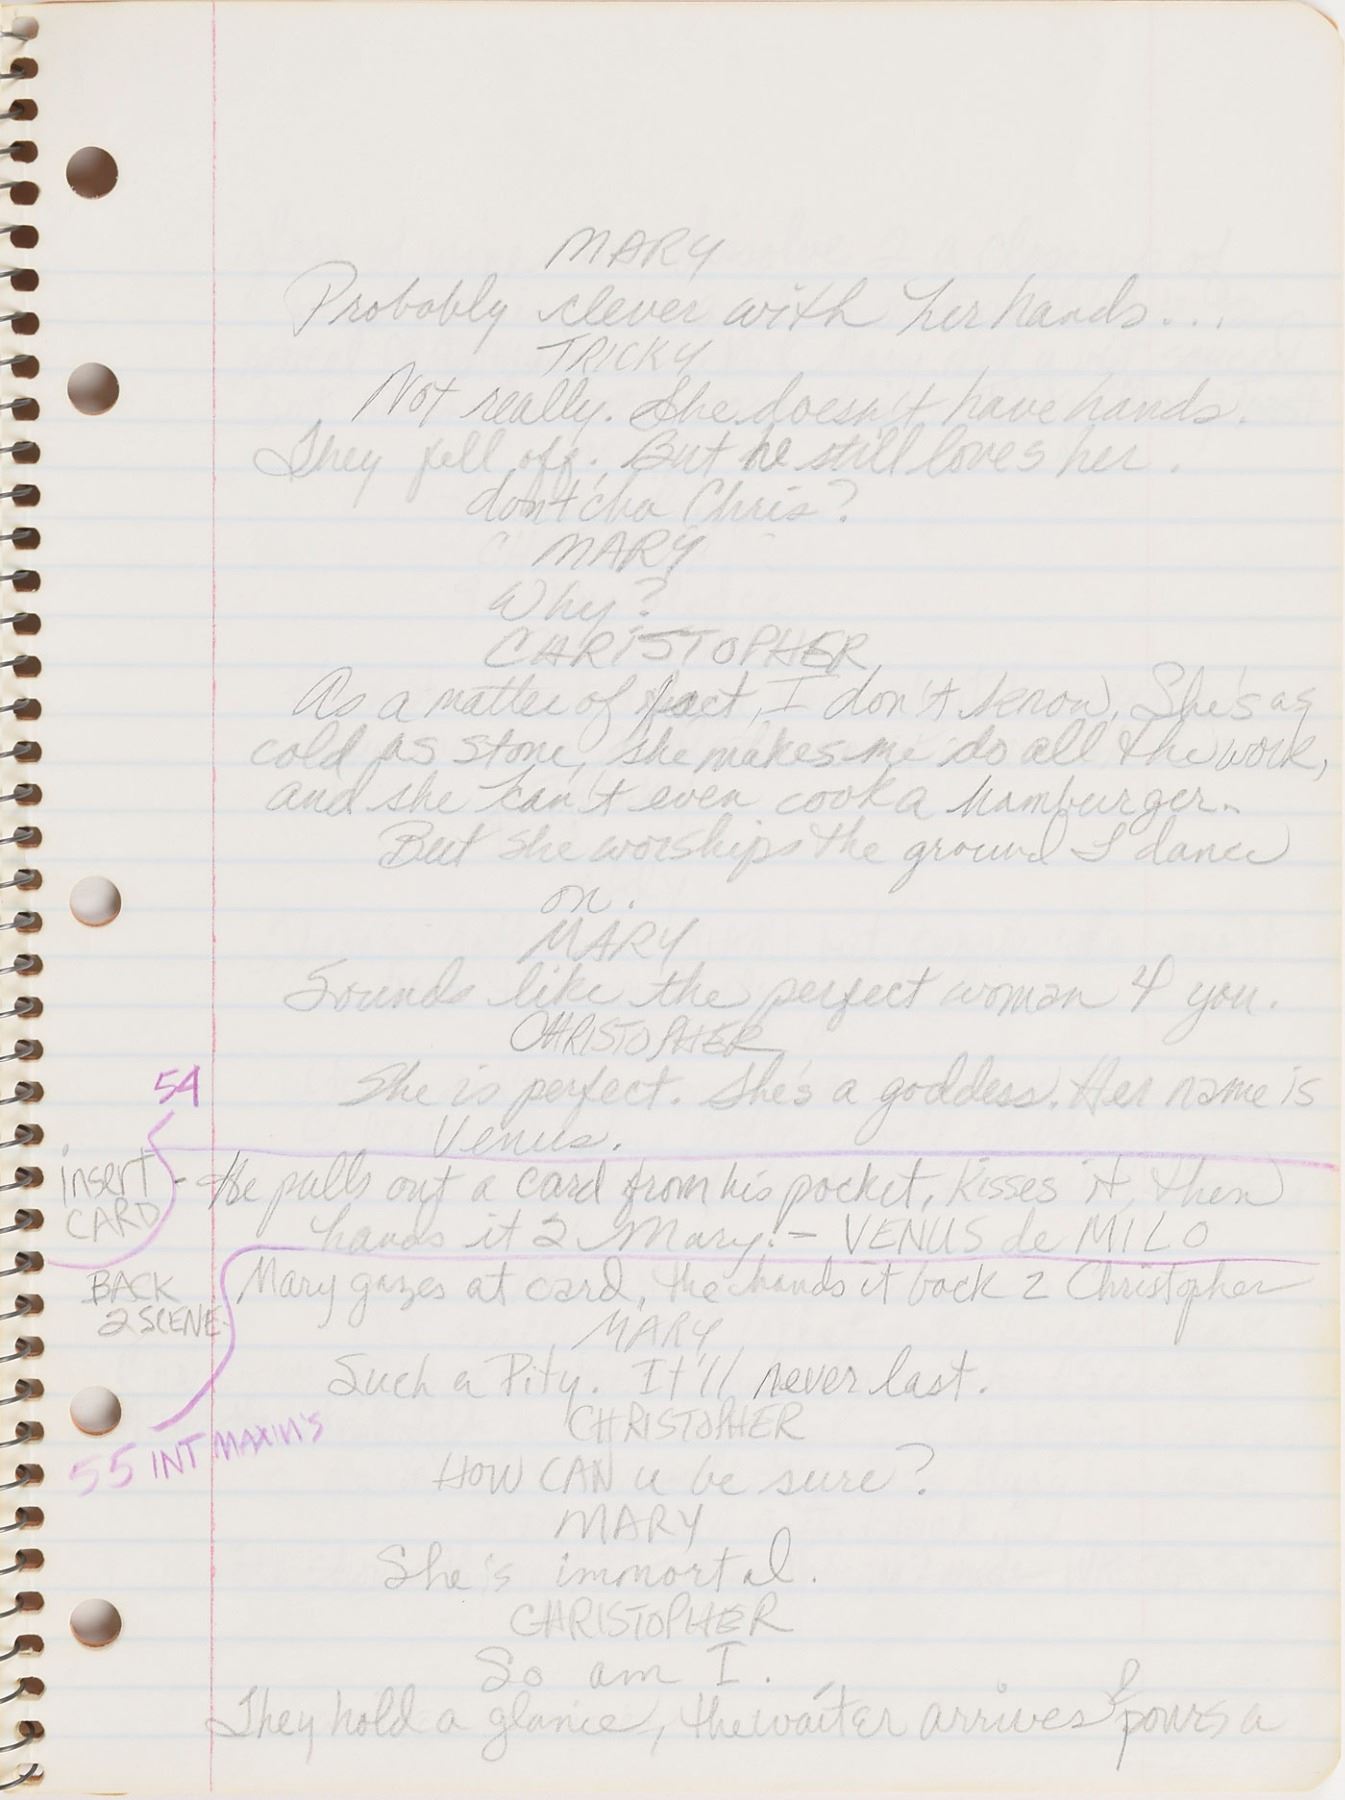 MARY
Probably clever with her hands...
TRICKY
Not really. She doesn't have hands.
They fell off. But he still loves her.
dontcha Chris?
MARY
Why?
CHRISTOPHER
As a matter of fact, I don't know. She's as
cold as stone, she makes me do all the work,
and she can't even cook a hamburger.
But she worships the ground I dance
on.
MARY
Sounds like the perfect woman 4 you.
CHRISTOPHER
She is perfect. She's a goddess. Her name is
Venus.
54
insert
CARD
- He pulls out a card from his pocket, kisses it, then
hands it 2 Mary. - VENUS de MILO
BACK
2 SCENE-
Mary gazes at card, the hands it back 2 Christopher
MARY
Such a Pity. It'll never last.
CHRISTOPHER
55 INT MAXIM'S
HOW CAN U be sure?
MARY
She's immortal.
CHRISTOPHER
So am I.
They hold a glance, the waiter arrives & pours a